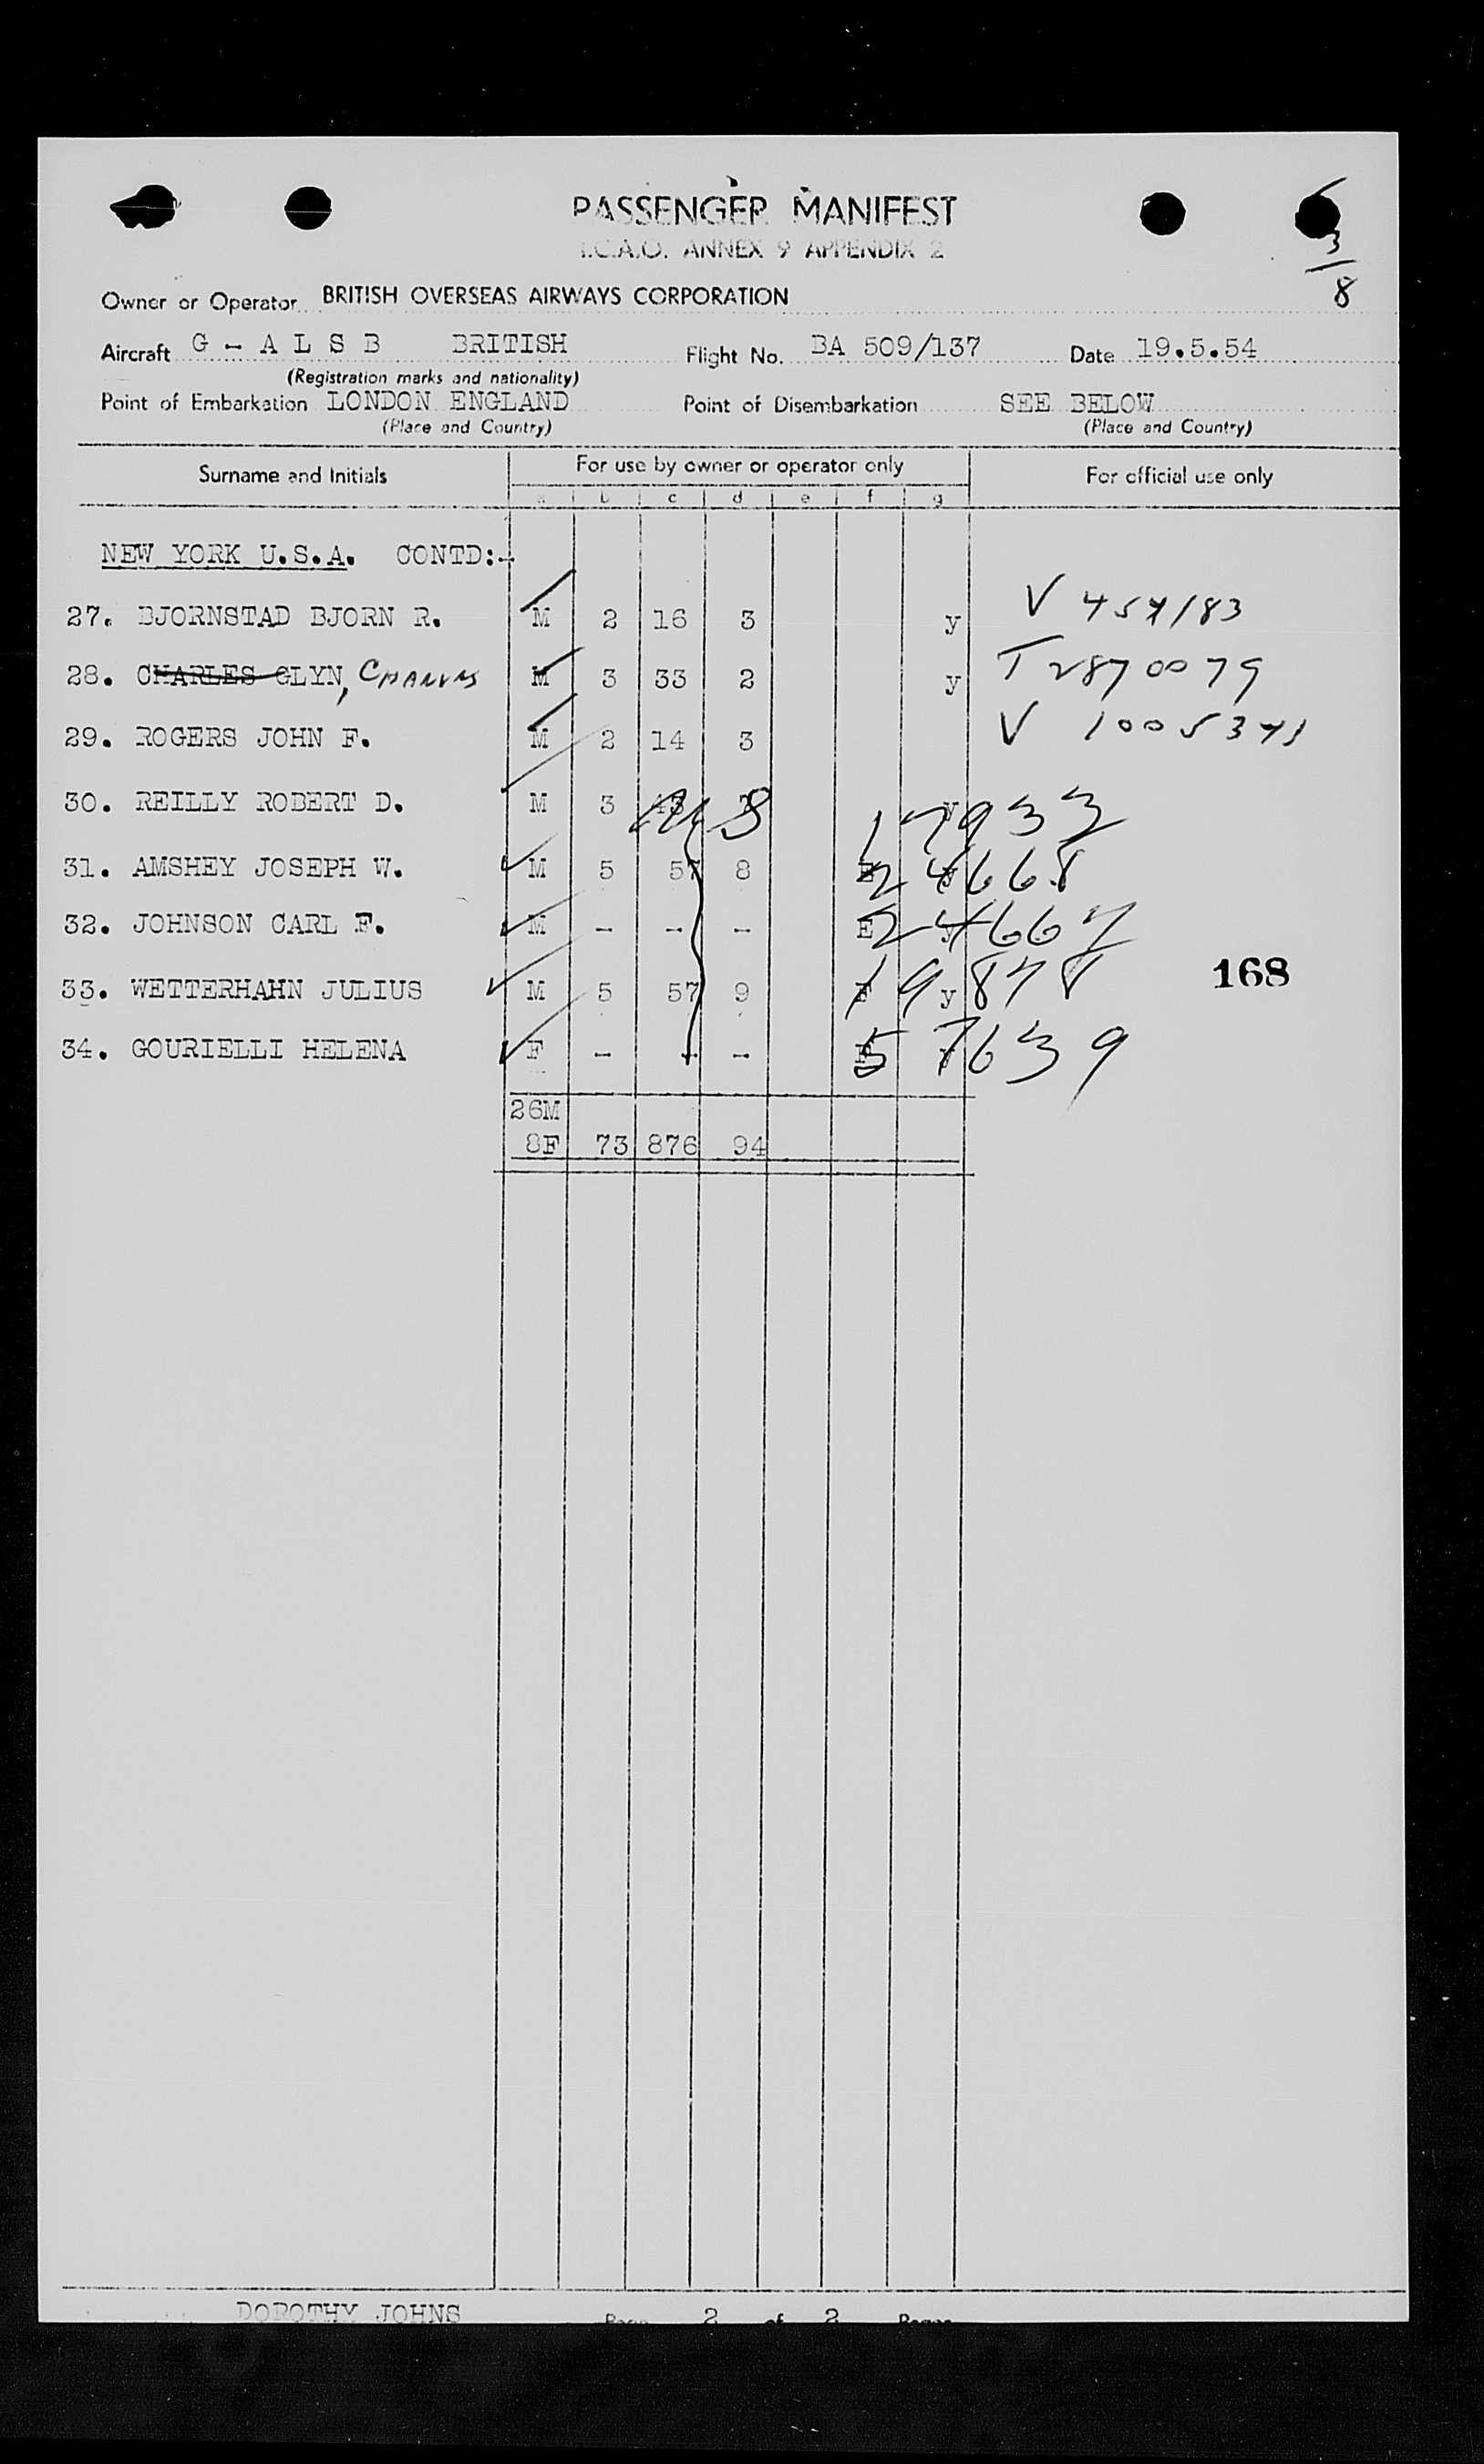 PASSENGER MANIFEST
I.C.A.O. ANNEX 9 APPENDIX 2
3/8
Owner or Operator BRITISH OVERSEAS AIRWAYS CORPORATION
Aircraft G - A L S B BRITISH Flight No. BA 509/137 Date 19.5.54
(Registration marks and nationality)
Point of Embarkation LONDON ENGLAND Point of Disembarkation SEE BELOW
(Place and Country) (Place and Country)
Surname and Initials For use by owner or operator only For official use only
a b c d e f g
NEW YORK U.S.A. CONTD:-
27. BJORNSTAD BJORN R. M 2 16 3 y V
28. CHARLES GLYN, CHARLES M 3 33 2 y T 2870079
29. ROGERS JOHN F. M 2 14 3 V
30. REILLY ROBERT D. M 3 US 17933
31. AMSHEY JOSEPH W. M 5 57 8 24668
32. JOHNSON CARL F. M - - - E y 24667
168
33. WETTERHAHN JULIUS M 5 57 9 y 19878
34. GOURIELLI HELENA F - - - 57639
26M
8F 73 876 94
DOROTHY JOHNS Page 2 of 2 Pages